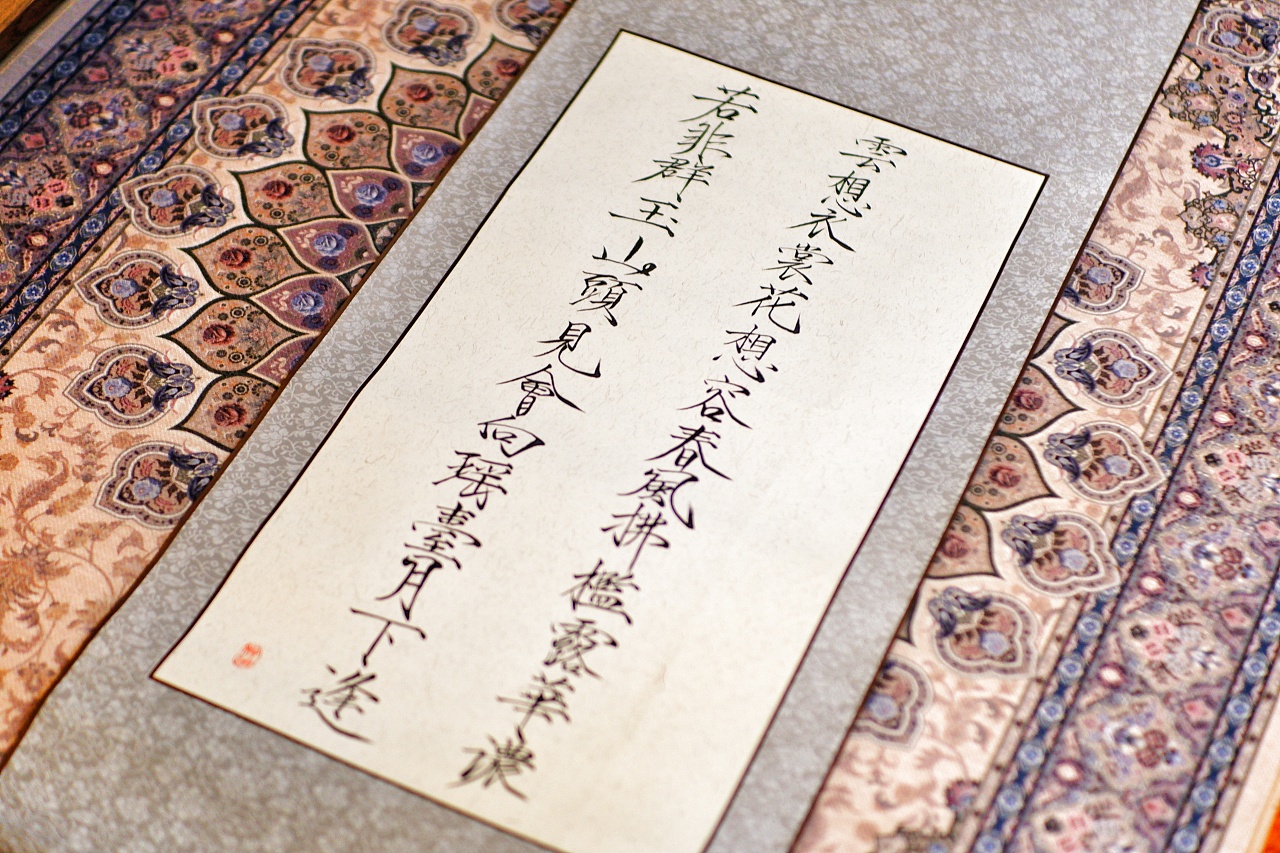 雲想衣裳花想容春風拂檻露華濃
若非群玉山頭見會向瑶臺月下逢